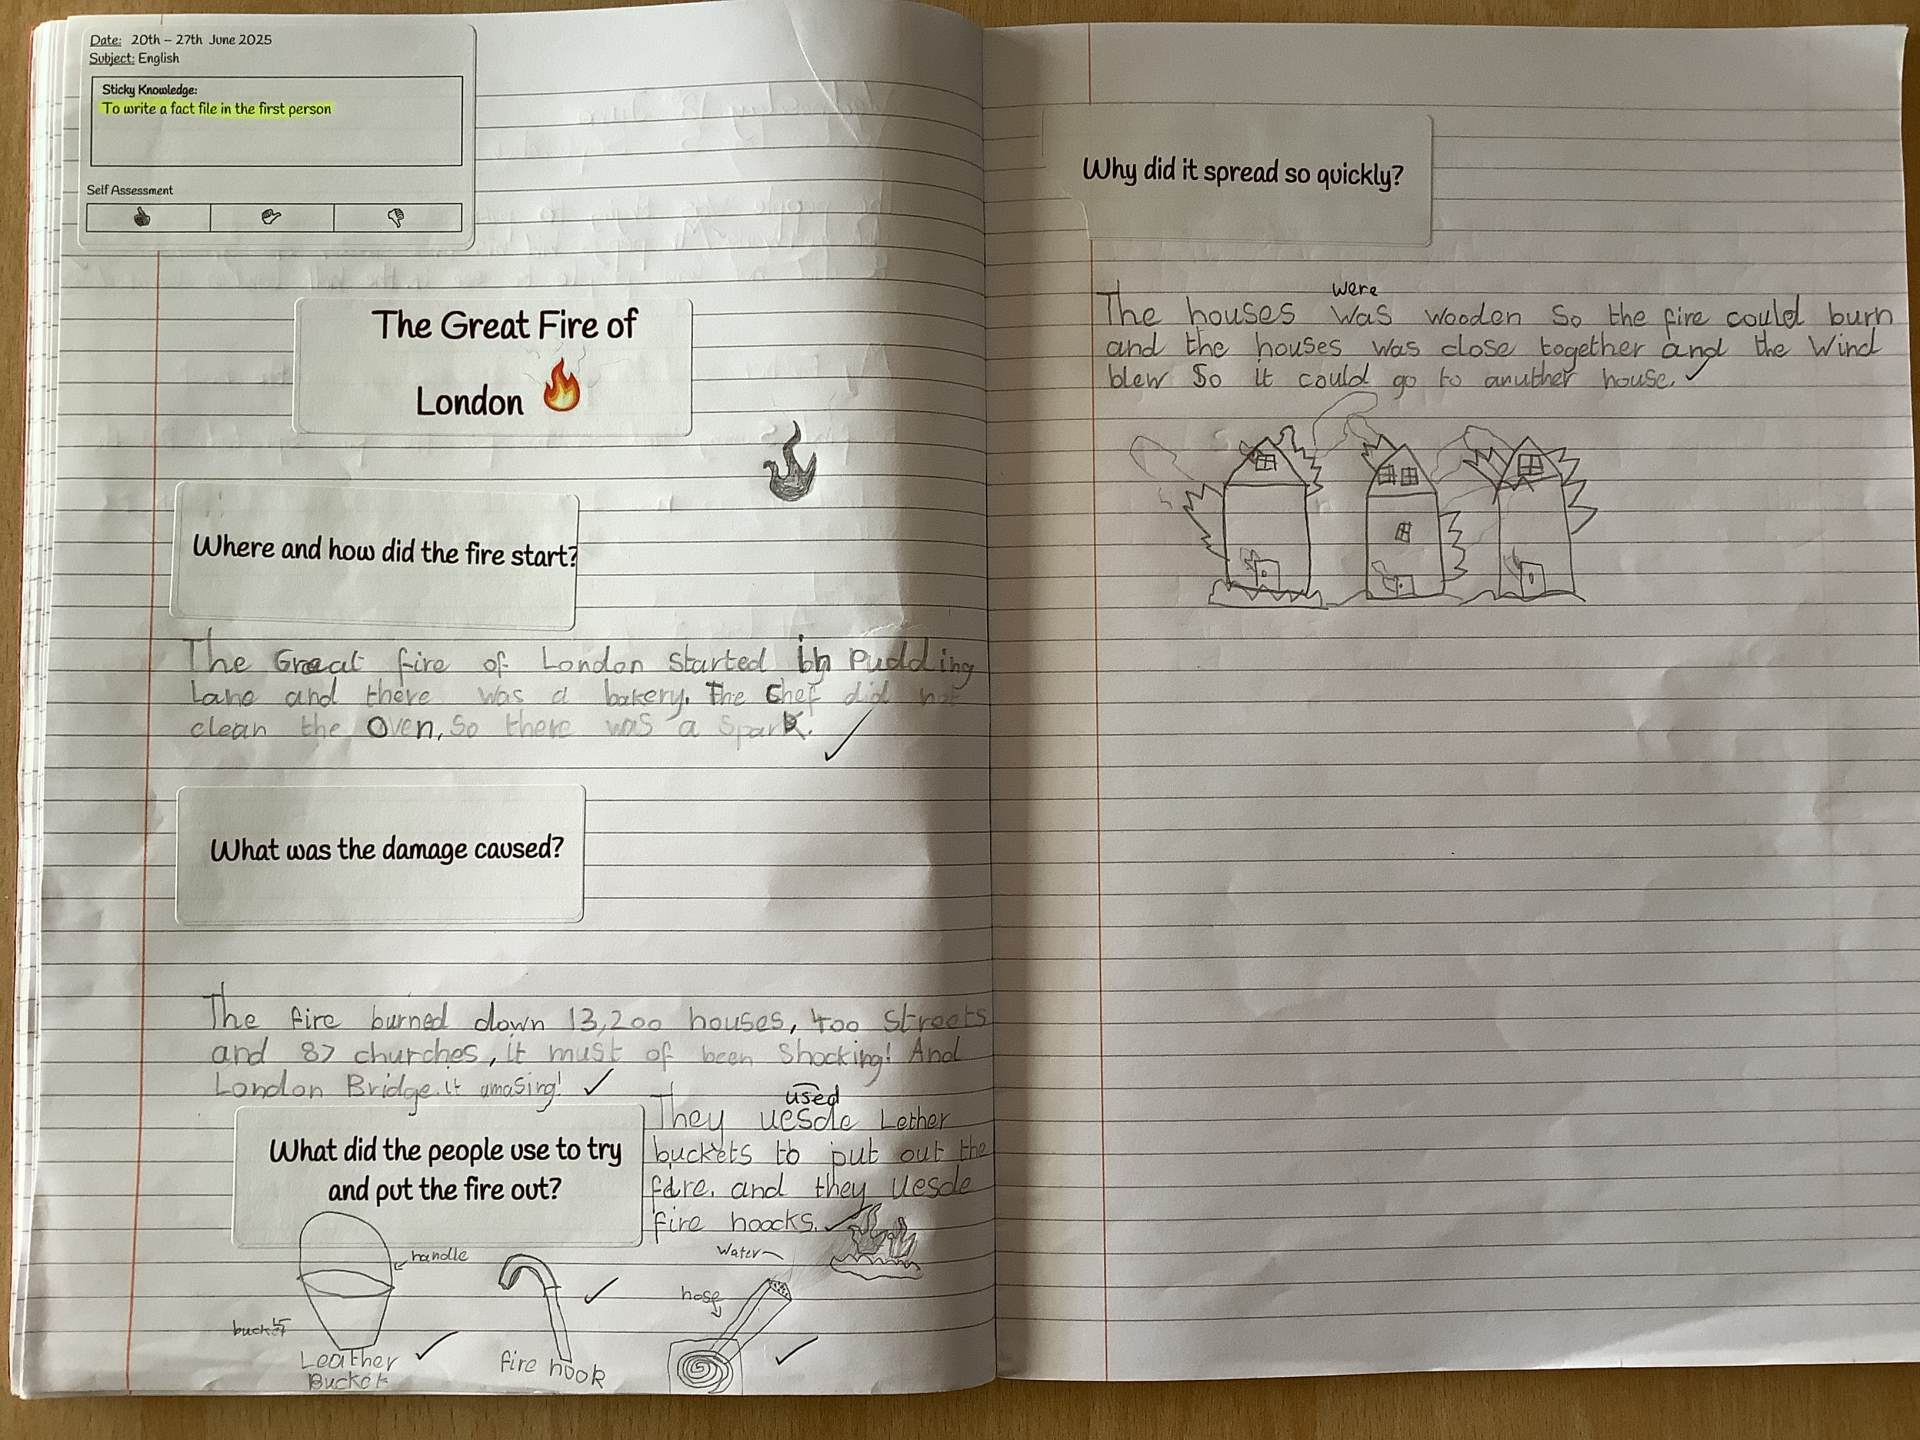 Date: 20th – 27th June 2025
Subject: English
Sticky Knowledge:
To write a fact file in the first person
Self Assessment
The Great Fire of
London
Where and how did the fire start?
The Great fire of London started in Pudding
Lane and there was a bakery. The Chef did not
clean the Oven, So there was a spark.
What was the damage caused?
The fire burned down 13,200 houses, 400 Streets
and 87 churches, it must of been Shocking! And
London Bridge. it amasing!
What did the people use to try
and put the fire out?
used
They uesde Lether
buckets to put out the
fire. and they uesde
fire hoocks.
handle
bucket
Leather
Bucket
fire hook
Water
hose
Why did it spread so quickly?
were
The houses was wooden So the fire could burn
and the houses was close together and the Wind
blew So it could go to anuther house.